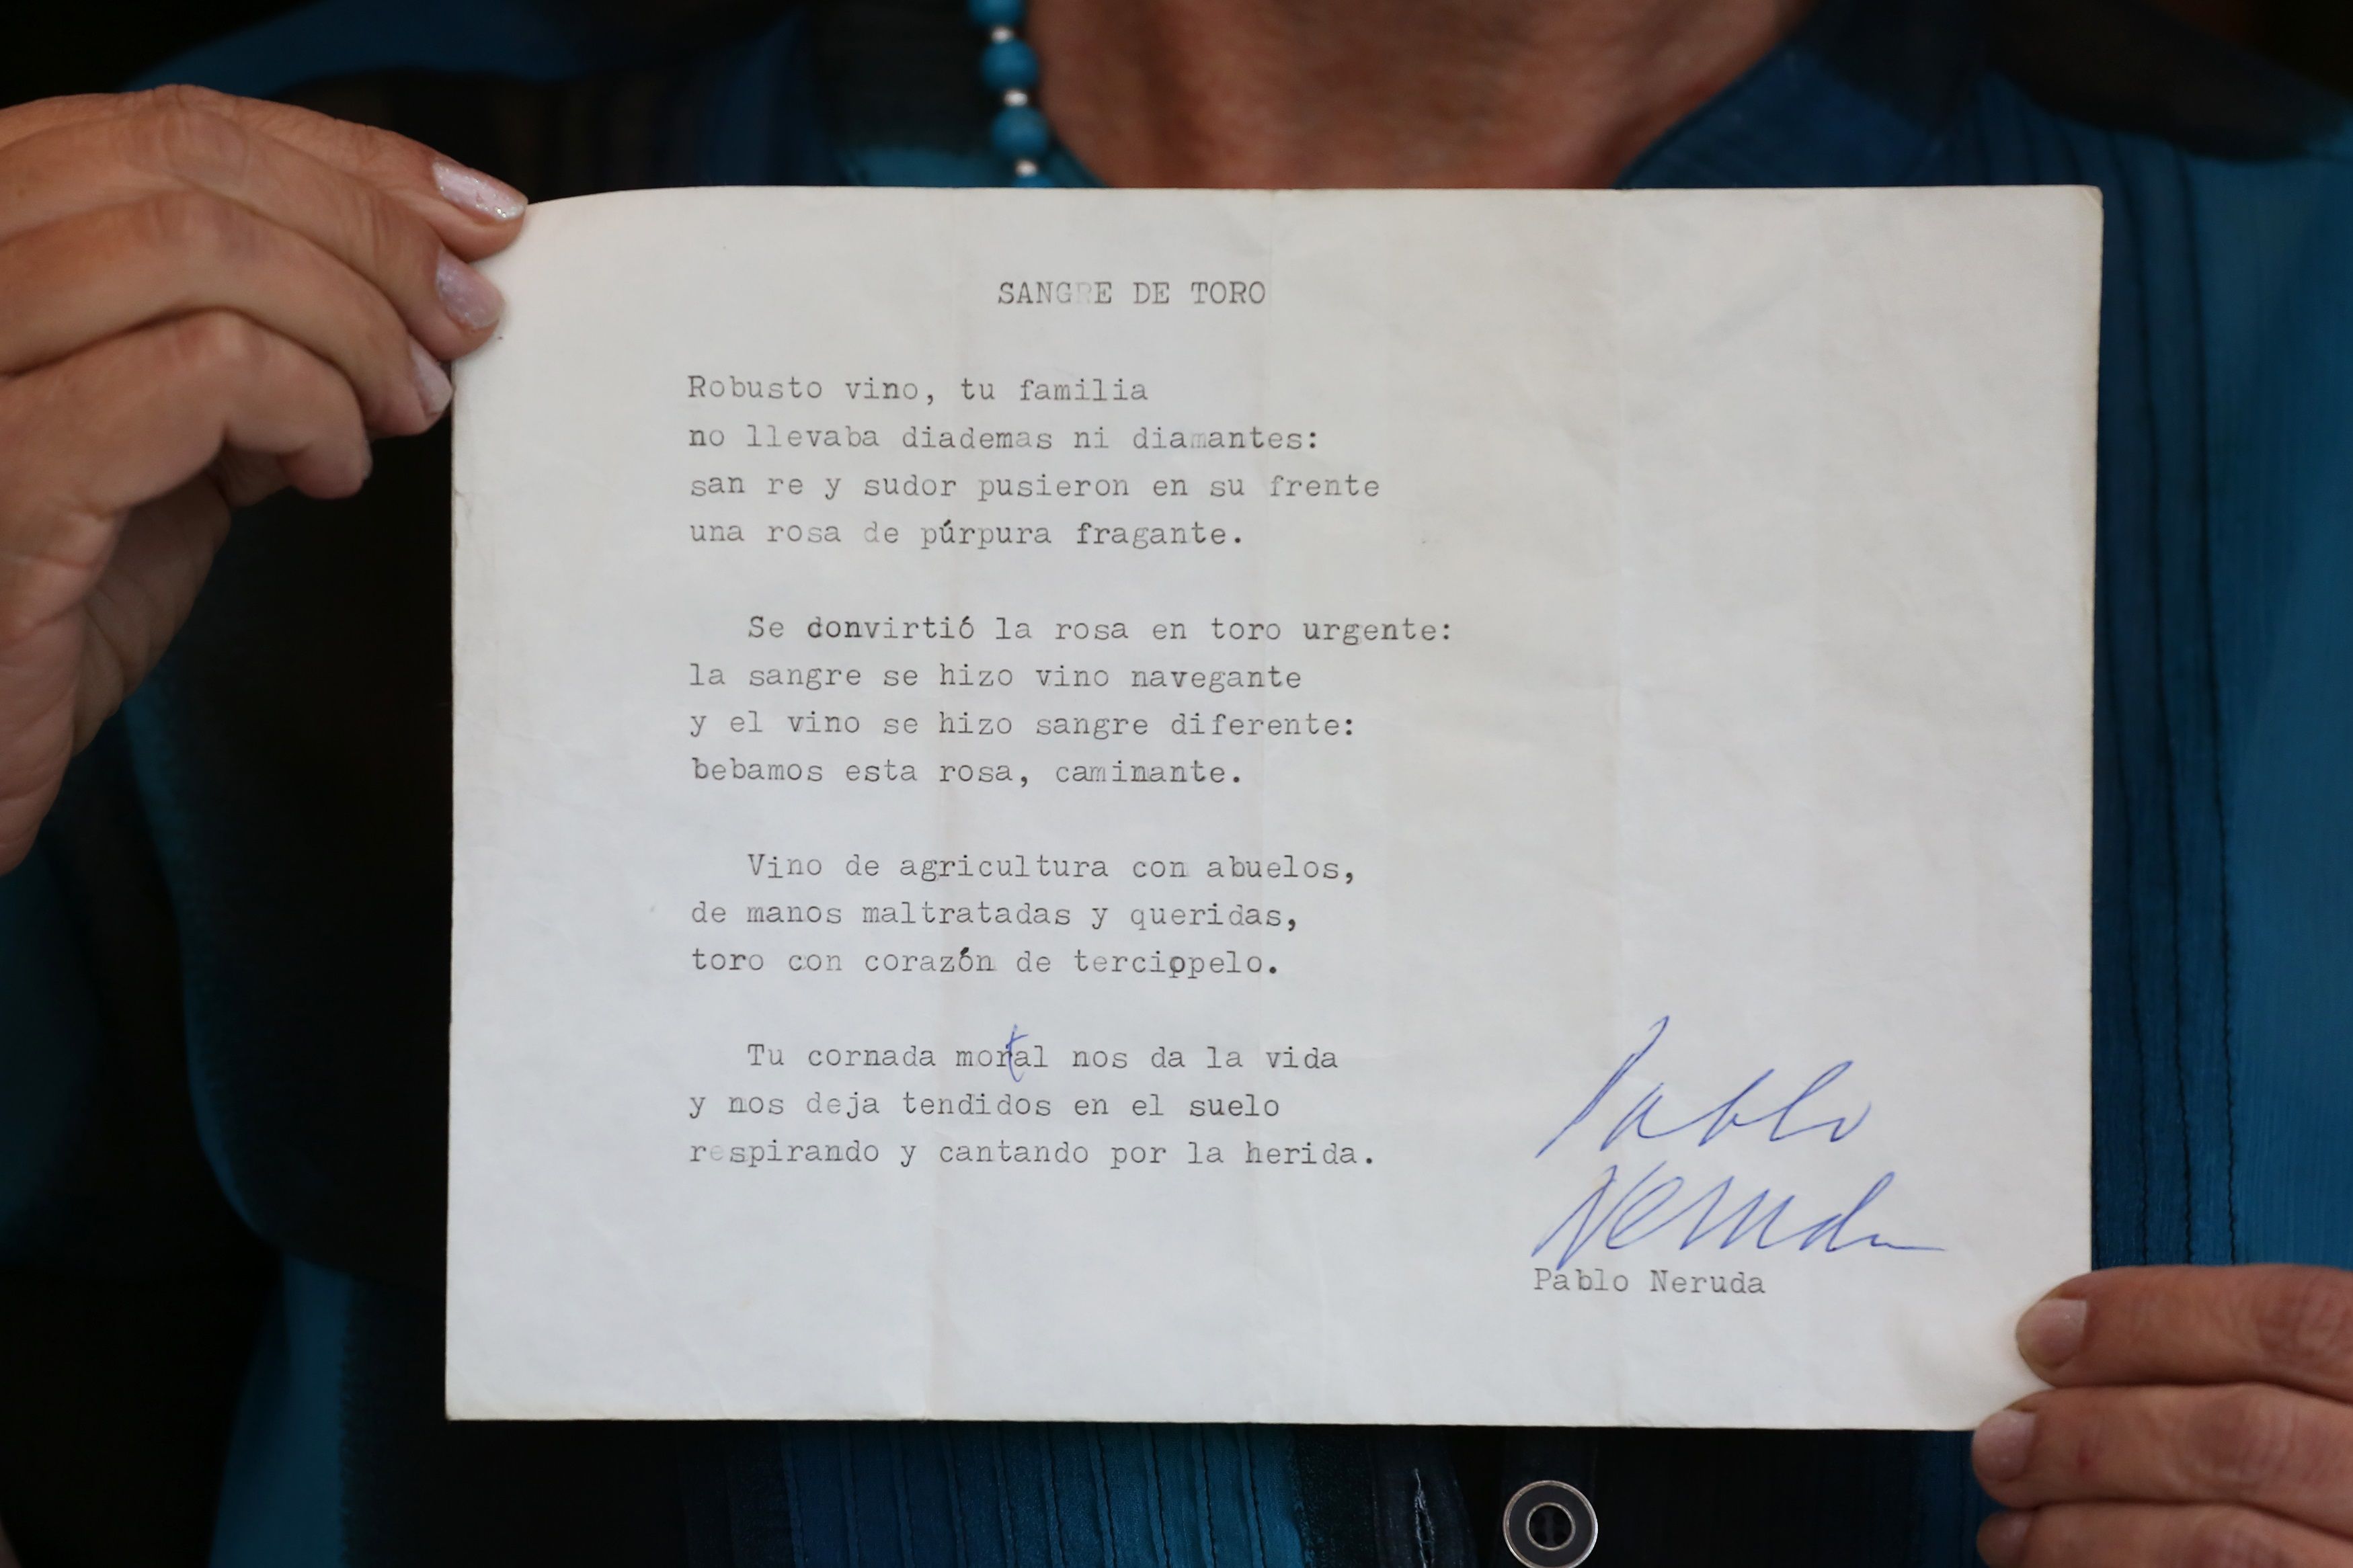 SANGRE DE TORO
Robusto vino, tu familia
no llevaba diademas ni diamantes:
san re y sudor pusieron en su frente
una rosa de púrpura fragante.
Se donvirtió la rosa en toro urgente:
la sangre se hizo vino navegante
y el vino se hizo sangre diferente:
bebamos esta rosa, caminante.
Vino de agricultura con abuelos,
de manos maltratadas y queridas,
toro con corazón de tercippelo.
Tu cornada mortal nos da la vida
y nos deja tendidos en el suelo
respirando y cantando por la herida.
Pablo
Neruda
Pablo Neruda